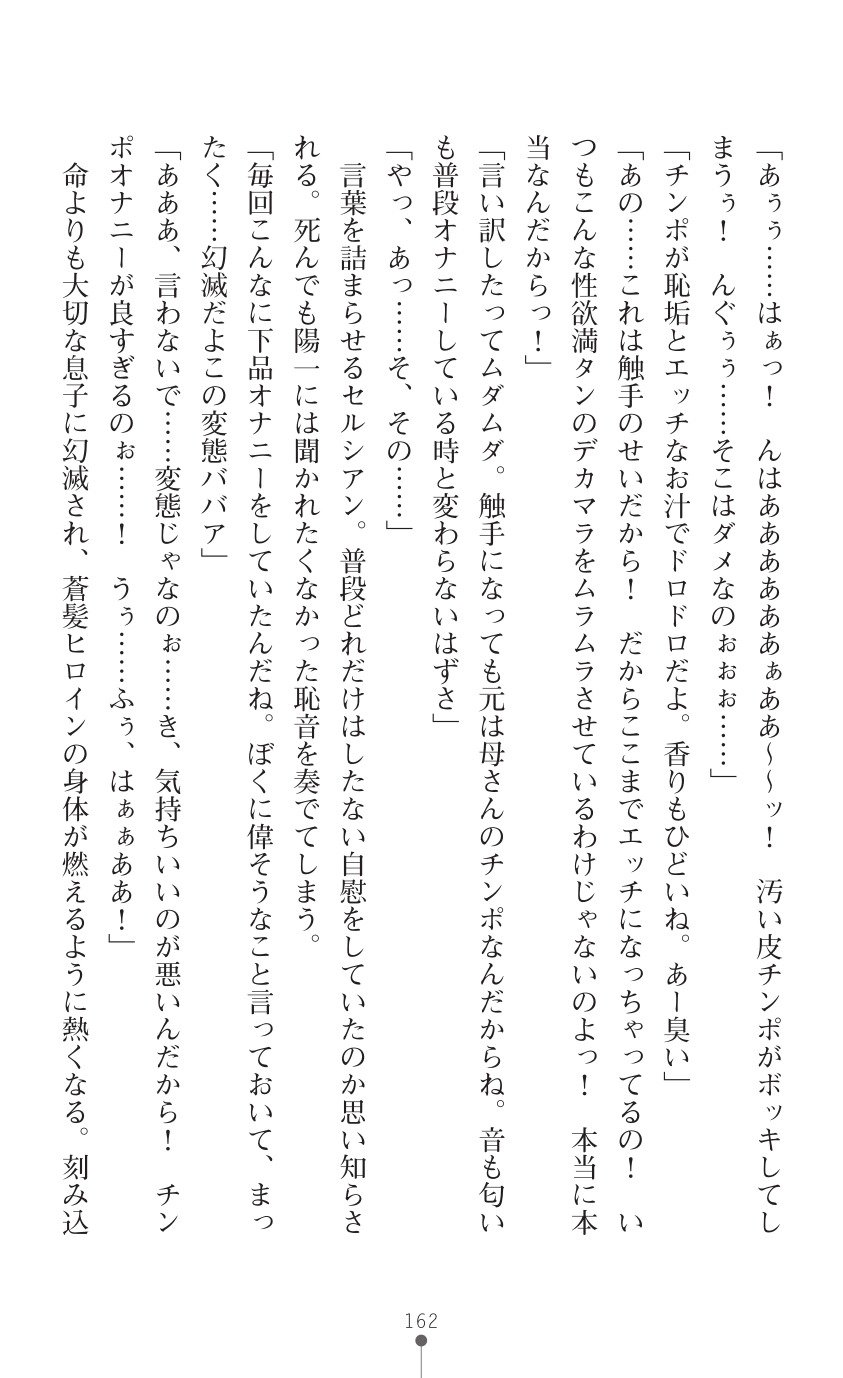 「あぅぅ……はぁっ！　んはあああああぁああ～～ッ！　汚い皮チンポがボッキしてし
まうぅ！　んぐぅぅ……そこはダメなのぉぉぉ……」
「チンポが恥垢とエッチなお汁でドロドロだよ。香りもひどいね。あー臭い」
「あの……これは触手のせいだから！　だからここまでエッチになっちゃってるの！　い
つもこんな性欲満タンのデカマラをムラムラさせているわけじゃないのよっ！　本当に本
当なんだからっ！」
「言い訳したってムダムダ。触手になっても元は母さんのチンポなんだからね。音も匂い
も普段オナニーしている時と変わらないはずさ」
「やっ、あっ……そ、その……」
　言葉を詰まらせるセルシアン。普段どれだけはしたない自慰をしていたのか思い知らさ
れる。死んでも陽一には聞かれたくなかった恥音を奏でてしまう。
「毎回こんなに下品オナニーをしていたんだね。ぼくに偉そうなこと言っておいて、まっ
たく……幻滅だよこの変態ババア」
「あああ、言わないで……変態じゃなのぉ……き、気持ちいいのが悪いんだから！　チン
ポオナニーが良すぎるのぉ……！　うぅ……ふぅ、はぁぁああ！」
　命よりも大切な息子に幻滅され、蒼髪ヒロインの身体が燃えるように熱くなる。刻み込
162